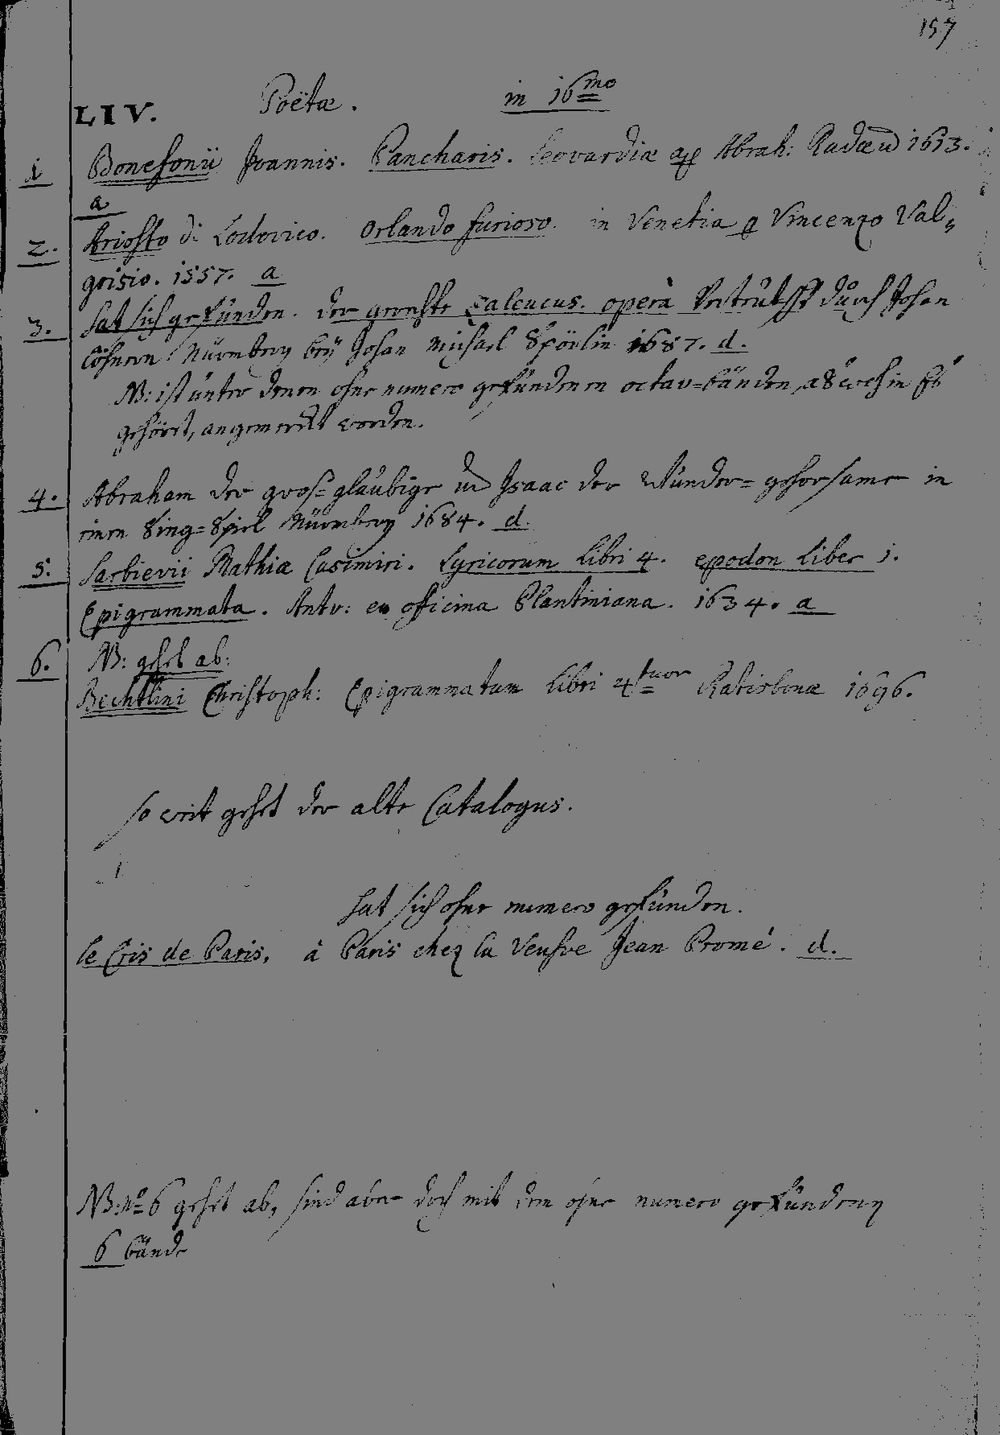 157
LIV. Poëtæ. in 16mo
1 Bonefonii Joannis. Pancharis. Leovardiæ ap Abrah: Radæum 1613.
a
2. Ariosto di Lodovico. Orlando furioso. in Venetia p Vincenzo Val-
grisio. 1557. a
3. hat sich gefunden. der gerechte Zaleucus. opera durch Johan
Löhnern Nürnberg beÿ Johan Michael Spörlin 1687. d.
NB: ist unter denen ohne numero gefundenen octav=bänden, als wohin Es
gehöret, angemerckt worden.
4. Abraham der gros=gläubige und Isaac der Wunder=gehorsame in
einen Sing=Spiel Nürnberg 1684. d.
5. Sarbievii Mathiæ Casimiri. Lyricorum libri 4. epodon liber 1.
Epigrammata. Antv: ex officina Plantiniana. 1634. a
6. NB: gehet ab:
Bechtlini Christoph: Epigrammatum libri 4tuor Ratisbonæ 1696.
so weit gehet der alte Catalogus.
hat sich ohne numero gefunden.
le Cris de Paris, à Paris chez la Veufve Jean Promé. d.
NB: No 6 gehet ab, sind aber doch mit dem ohne numero gefundenen
6 bände